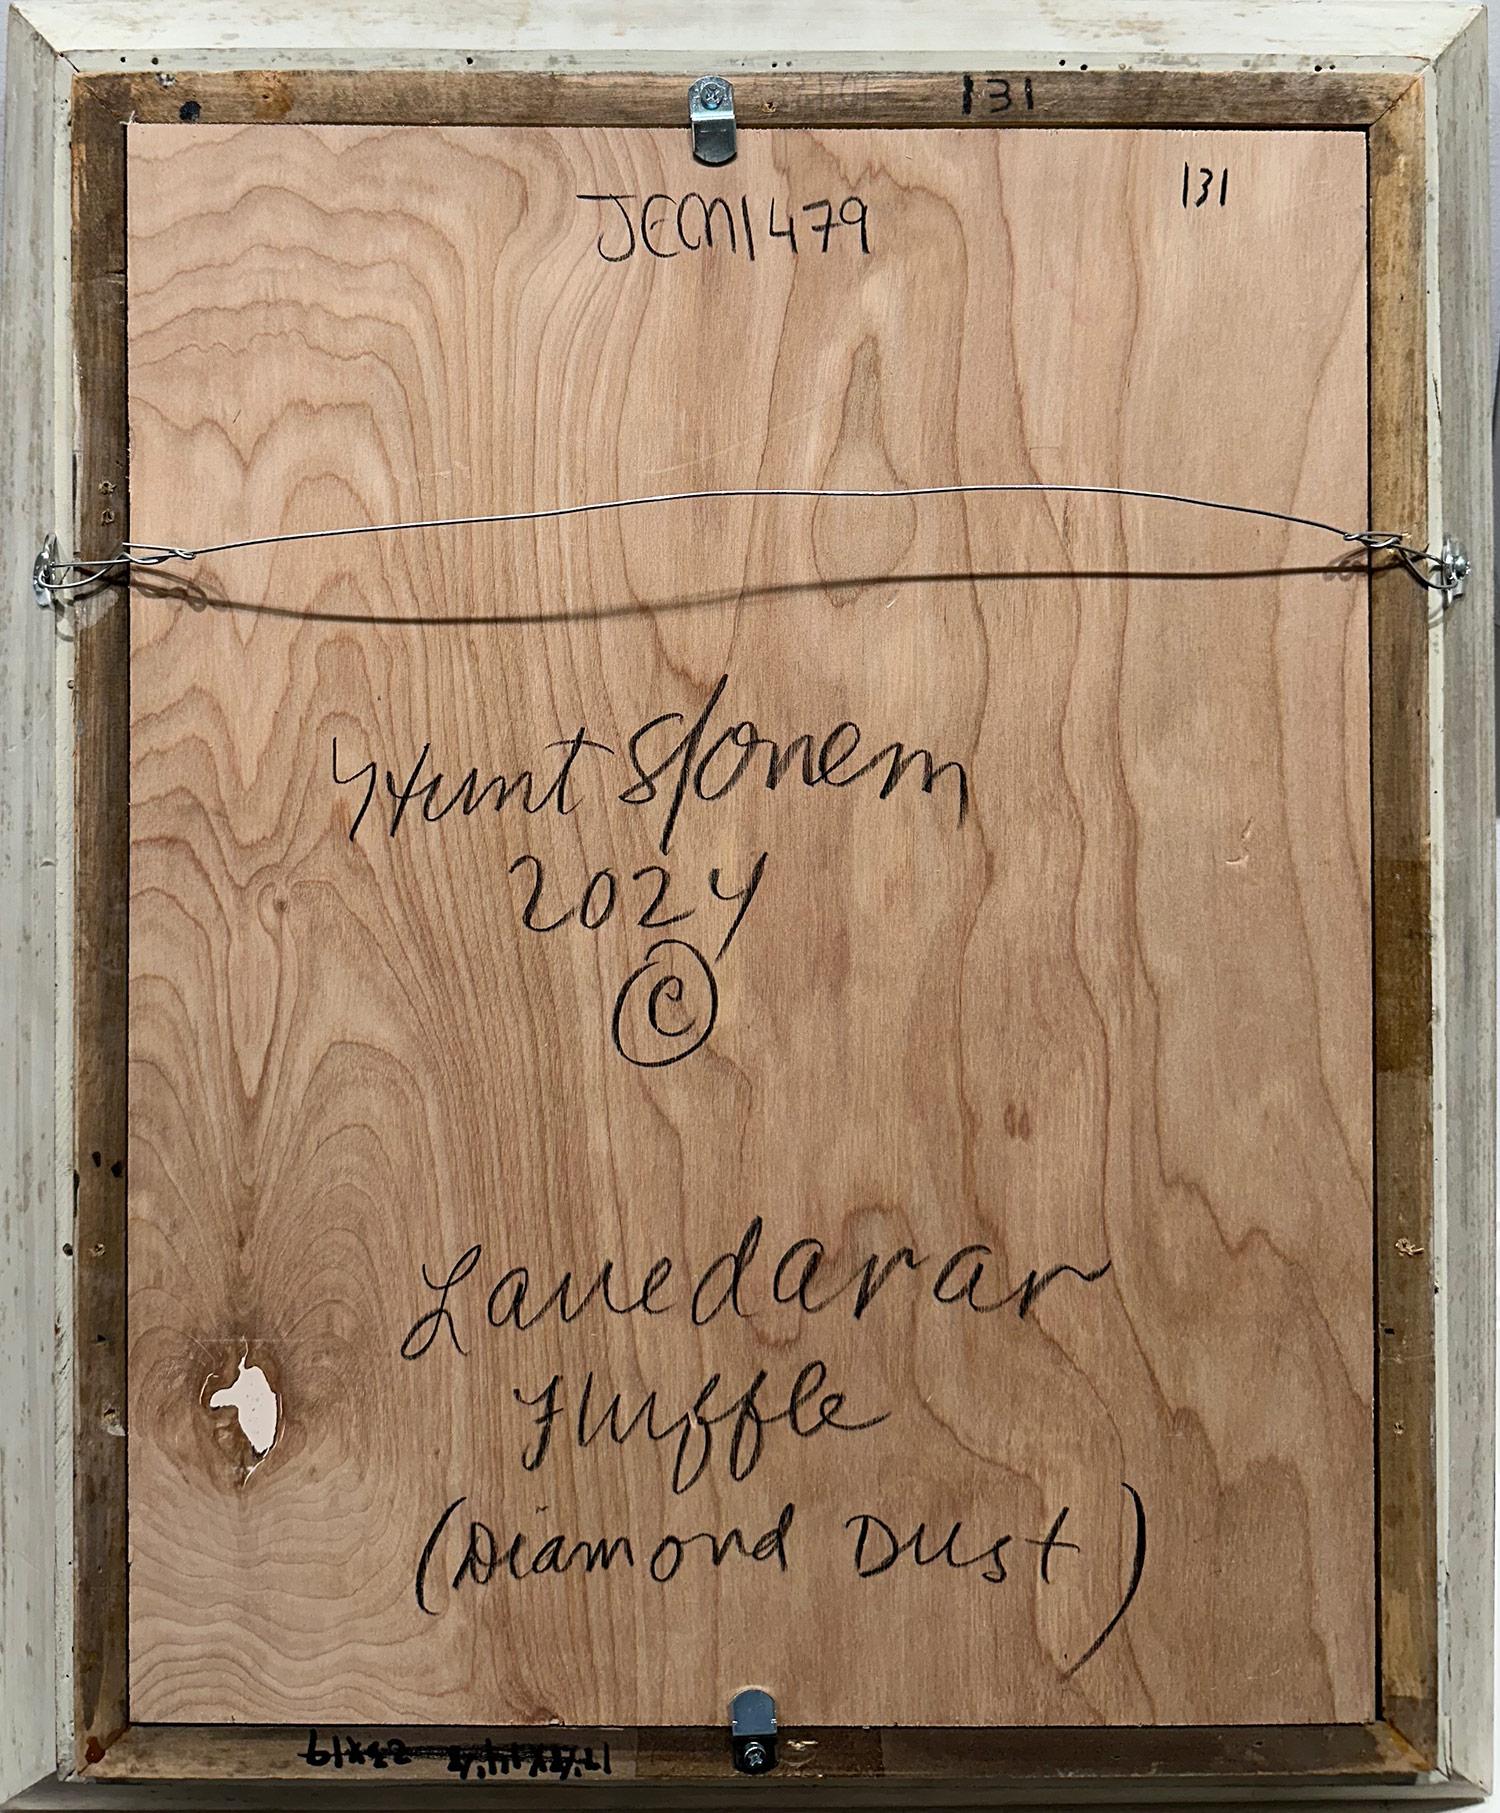 131
131
JECM1479
Hunt Slonem
2024
©
Lauedarar
Fluffle
(Diamond Dust)